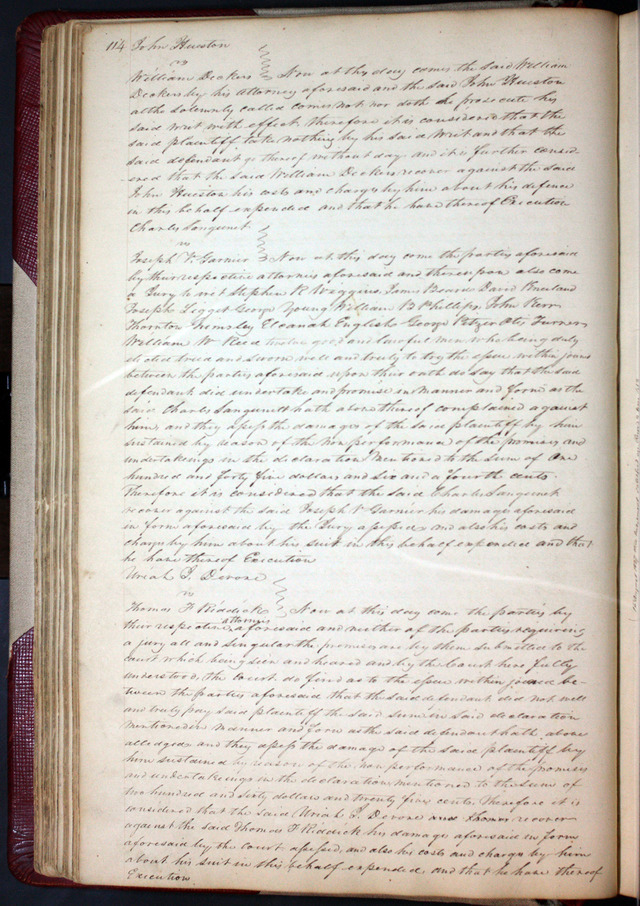 114 John Hueston
vs
William Deckers } Now at this day comes the said William
Deckers by his attorney aforesaid and the said John Hueston
altho solemnly called comes not nor doth he prosecute his
said writ with effect therefore it is considered that the
said plaintiff take nothing by his said writ and that the
said defendant go thereof without day and it is further consid-
ered that the said William Deckers recover against the said
John Hueston his costs and charges by him about his defence
in this behalf expended and that he have thereof Execution
Charles Sanguinet
vs
Joseph V Garnier } Now at this day come the parties aforesaid
by their respective attornies aforesaid and thereupon also come
a Jury to wit Stephen R Wiggins, James Beard David Kneeland
Joseph Legget George Young William B Phillips, John Kerr
Thornton Grimsley Eleanah English George Kitzer Otis Turner
William W Reed twelve good and lawful men who being duly
elected tried and sworn well and truly to try the issue within joined
between the parties aforesaid upon their oath do say that the said
defendant did undertake and promise in Manner and form as the
said Charles Sanguinett hath above thereof complained against
him, and they assess the damages of the said plaintiff by him
sustained by reason of the non performance of the promises and
undertakings in the declaration Mentioned to the sum of One
hundred and forty five dollars and six and a fourth cents.
Therefore it is considered that the said Charles Sanguinet
recover against the said Joseph V Garnier his damages aforesaid
in form aforesaid by the Jury assessed and also his costs and
charges by him about his suit in this behalf expended and that
he have thereof Execution
Uriah J. Devore
vs
Thomas F Riddick } Now at this day come the parties by
their respective attornies aforesaid and neither of the parties requiring
a jury all and singular the premises are by them submitted to the
court which being seen and heard and by the Court here fully
understood. The Court do find as to the issue within joined be-
tween the parties aforesaid that the said defendant did not well
and truly pay said plaintiff the said sum in said declaration
mentioned in manner and form as the said defendant hath above
alledged and they assess the damage of the said plaintiff by
him sustained by reason of the non performance of the promises
and undertakings in the declaration mentioned to the sum of
two hundred and sixty dollars and twenty five cents. Therefore it is
considered that the said Uriah J. Devore and Thomas recover
against the said Thomas F Riddick his damages aforesaid in form
aforesaid by the court assessed, and also his costs and charges by him
about his suit in this behalf expended, and that he have thereof
Execution